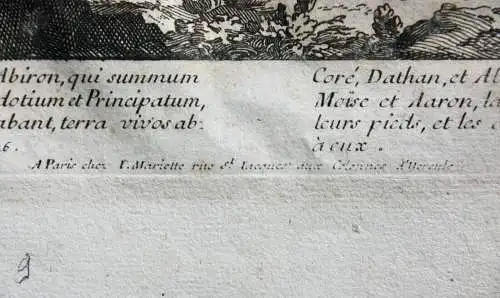 Abiron, qui summum
dotium et Principatum,
abant, terra vivos ab-
6.
Coré, Dathan, et Ab
Moïse et Aaron, la
leurs pieds, et les
à eux.
A Paris chez I. Mariette rue St. Jacques aux Colonnes d'Hercule
9